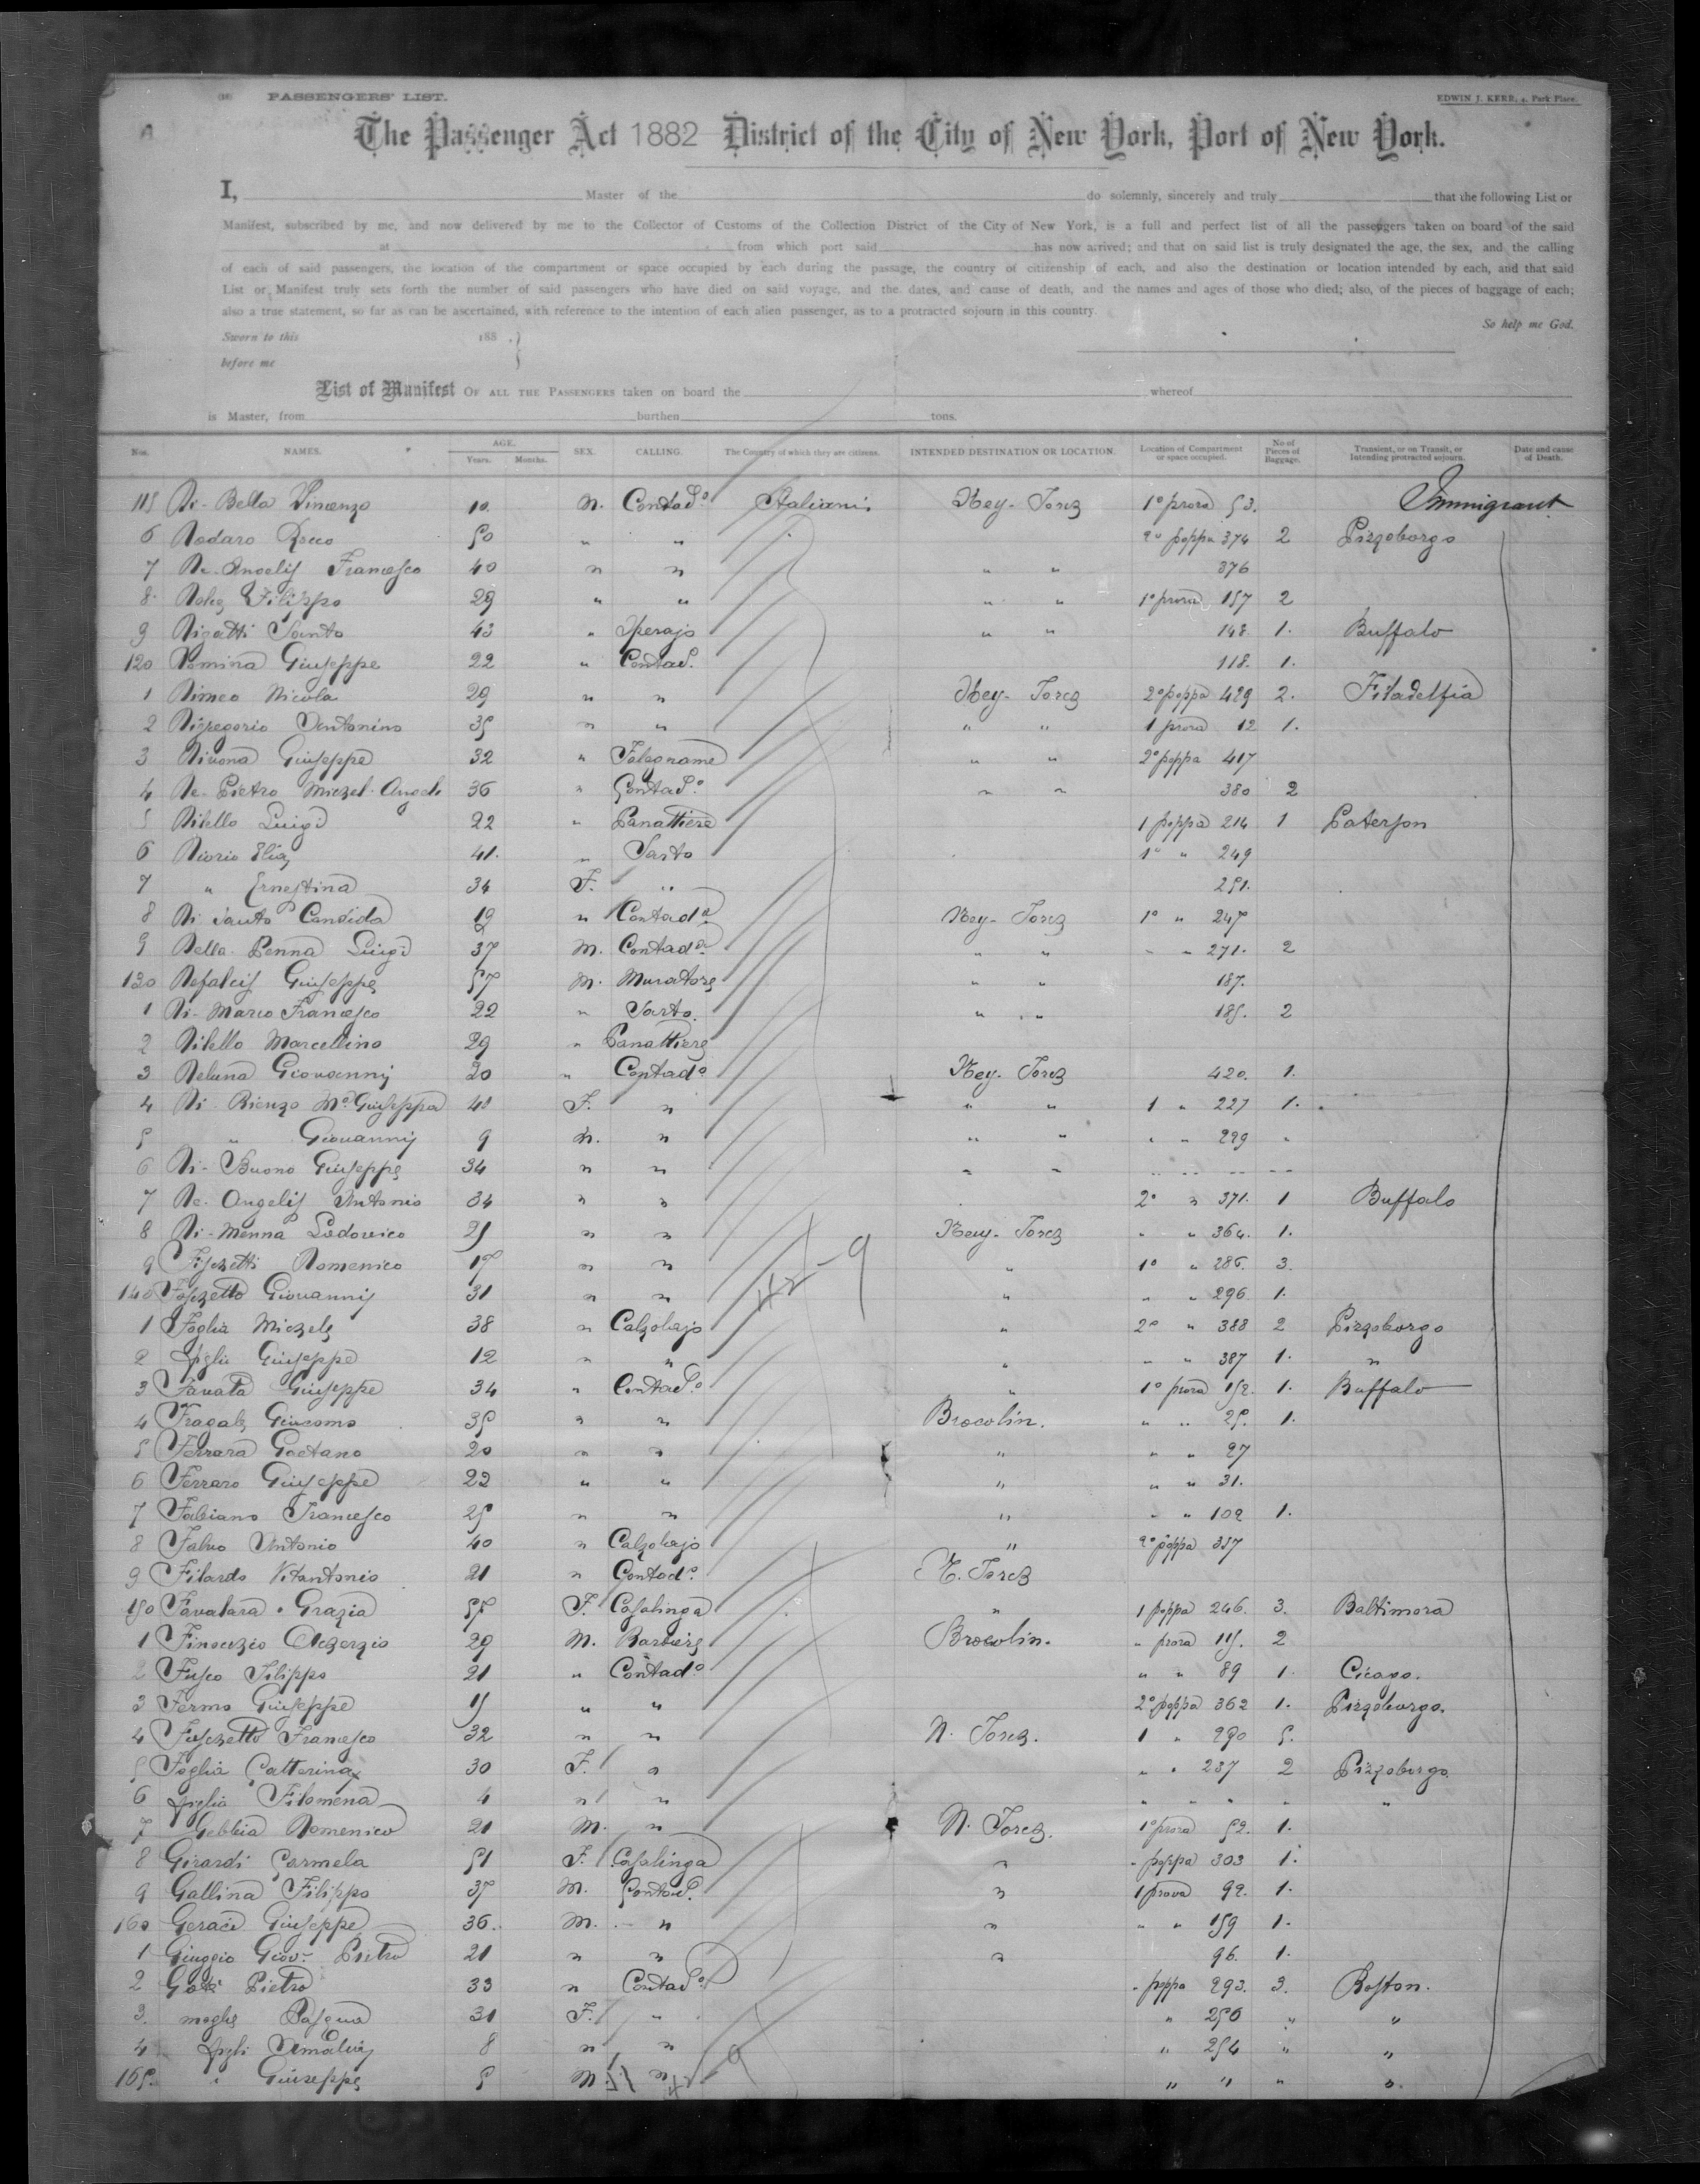 (18) PASSENGERS' LIST. EDWIN J. KERR, 4, Park Place.
The Passenger Act 1882 District of the City of New York, Port of New York.
I, Master of the do solemnly, sincerely and truly that the following List or
Manifest, subscribed by me, and now delivered by me to the Collector of Customs of the Collection District of the City of New York, is a full and perfect list of all the passengers taken on board of the said
at from which port said has now arrived; and that on said list is truly designated the age, the sex, and the calling
of each of said passengers, the location of the compartment or space occupied by each during the passage, the country of citizenship of each, and also the destination or location intended by each, and that said
List or Manifest truly sets forth the number of said passengers who have died on said voyage, and the dates, and cause of death, and the names and ages of those who died; also, of the pieces of baggage of each;
also a true statement, so far as can be ascertained, with reference to the intention of each alien passenger, as to a protracted sojourn in this country.
So help me God.
Sworn to this 188 .
before me
List of Manifest OF ALL THE PASSENGERS taken on board the whereof
is Master, from burthen tons.
Nos. NAMES. AGE. Years. Months. SEX. CALLING. The Country of which they are citizens. INTENDED DESTINATION OR LOCATION. Location of Compartment or space occupied. No of Pieces of Baggage. Transient, or on Transit, or Intending protracted sojourn. Date and cause of Death.
115 Di-Bella Vincenzo 10. M. Contad.o Italiani Ney-Jorck 1o prora 53. Immigrant
6 Dodaro Rocco 50 " " 2o poppa 374 2 Pizzoborgo
7 De-Angelis Francesco 40 " " " " 376
8 Filippo 29 " " " " 1o prora 157 2
9 Digatti Santo 43 " Operajo " " 148. 1. Buffalo
120 Domina Giuseppe 22 " Contad. 118. 1.
1 Dimeo Nicola 29 " " Ney-Jorck 2o poppa 429 2. Filadelfia
2 Digregorio Antonino 35 " " " " 1 prora 12 1.
3 Divona Giuseppe 32 " Falegname " " 2o poppa 417
4 De-Pietro Michel-Angelo 36 " Contad.o " " 380 2
5 Ditello Luigi 22 " Panattiere 1 poppa 214 1 Paterson
6 Diorio Elia 41. " Sarto 1o " 249
7 " Ernestina 34 F. " 251.
8 Di Santo Candida 19 " Contad.a Ney-Jorck 1o " 247
9 Della-Penna Luigi 37 M. Contad.o " " " " 271. 2
130 Defalcis Giuseppe 57 M. Muratore " " 187.
1 Di-Marco Francesco 22 " Sarto. " " 185. 2
2 Ditello Marcellino 29 " Panattiere
3 Deluna Giovanni 20 " Contad.o Ney-Jorck 420. 1.
4 Di-Rienzo Ma. Giuseppa 40 F. " " " 1 " 227 1.
5 " Giovanni 9 M. " " " " " 229 "
6 Di-Buono Giuseppe 34 " " " " " " " "
7 De-Angelis Antonio 34 " " 2o " 371. 1 Buffalo
8 Di-Menna Lodovico 25 " " Ney-Jorck " " 364. 1.
9 Fischetti Domenico 17 " " " 1o " 286. 3.
140 Giovanni 31 " " " " " 296. 1.
1 Foglia Michele 38 " Calzolajo " 2o " 388 2 Pizzoborgo
2 figlio Giuseppe 12 " " " " " 387 1. "
3 Favata Giuseppe 34 " Contad.o " 1o prora 152. 1. Buffalo
4 Fragale Giacomo 35 " " Brocolin. " " 25. 1.
5 Ferrara Gaetano 20 " " " " " 27
6 Ferraro Giuseppe 22 " " " " " 31.
7 Fabiano Francesco 25 " " " " " 102 1.
8 Falvo Antonio 40 " Calzolajo " 2o poppa 357
9 Filardo Vitantonio 21 " Contad.o N. Jorck
150 Favalara Grazia 55 F. Casalinga " 1 poppa 246. 3. Baltimora
1 Finocchio 29 M. Barbiere Brocolin. " prora 115. 2
2 Fusco Filippo 21 " Contad.o " " 89 1. Cicago.
3 Fermo Giuseppe 15 " " 2o poppa 362 1. Pizzoburgo.
4 Francesco 32 " " N. Jorck. 1 " 290 5.
5 Foglia Catterina 30 F. " " " 237 2 Pizzoburgo
6 figlia Filomena 4 " " " " " " "
7 Gebbia Domenico 21 M. " N. Jorck. 1o prora 52. 1.
8 Girardi Carmela 51 F. Casalinga " " poppa 303 1.
9 Gallina Filippo 37 M. Contad. " 1 prora 92. 1.
160 Geraci Giuseppe 36. M. " " " " 159 1.
1 Giuggio Giov. Pietro 21 " " " 96. 1.
2 Pietro 33 " Contad.o " poppa 293. 3. Boston.
3. moglie Pasqua 31 F. " " 250 " "
4 figli Amalia 8 " " " 254 " "
165. " Giuseppe 5 M. " " " " "